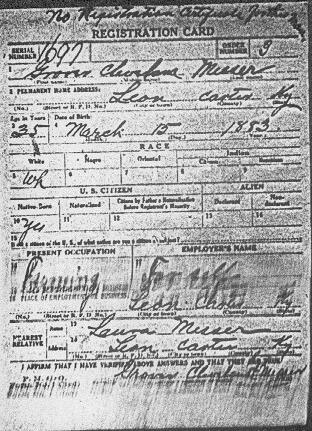 No Registration
REGISTRATION CARD
SERIAL NUMBER 1697 ORDER NUMBER 3
1 Grover Cleveland Messer
2 PERMANENT HOME ADDRESS:
Leon Carter Ky
(No.) (Street or R. F. D. No.) (City or town) (County) (State)
Age in Years Date of Birth
3 35 4 March 15 1883
(Month) (Day) (Year)
RACE
White Negro Oriental Indian
Citizen Noncitizen
5 Wh 6 7 8 9
U. S. CITIZEN ALIEN
Native Born Naturalized Citizen by Father's Naturalization Before Registrant's Majority Declarant Non-declarant
10 Yes 11 12 13 14
15 If not a citizen of the U. S., of what nation are you a citizen or subject?
PRESENT OCCUPATION EMPLOYER'S NAME
16 Farming 17 For self
18 PLACE OF EMPLOYMENT OR BUSINESS
Leon Carter Ky
(No.) (Street or R. F. D. No.) (City or town) (County) (State)
NEAREST RELATIVE Name 19 Laura Messer
Address 20 Leon Carter Ky
(No.) (Street or R. F. D. No.) (City or town) (County) (State)
I AFFIRM THAT I HAVE VERIFIED ABOVE ANSWERS AND THAT THEY ARE TRUE
Grover Cleveland Messer